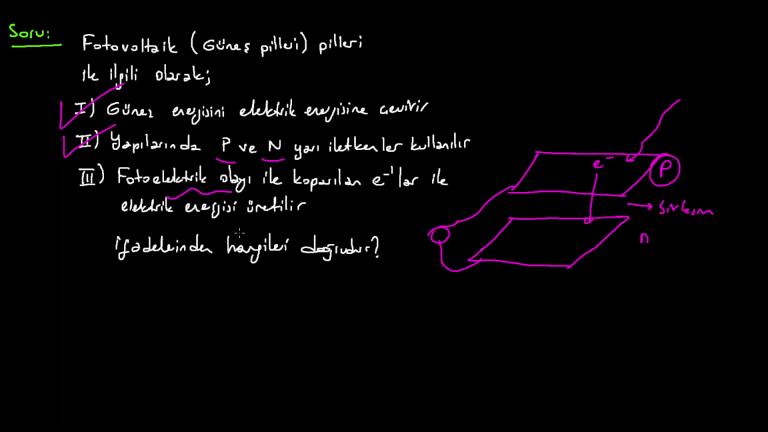 Soru:
Fotovoltaik (Güneş pilleri) pilleri
ile ilgili olarak;
I) Güneş enerjisini elektrik enerjisine çevirir
II) Yapılarında P ve N yarı iletkenler kullanılır
III) Fotoelektrik olayı ile koparılan e⁻'lar ile
elektrik enerjisi üretilir
ifadelerinden hangileri doğrudur?
e⁻
P
n